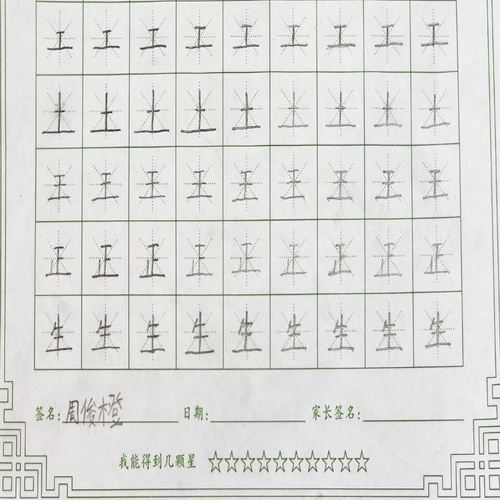 工工工工工工工工工
土土土土土土土土土
王王王王王王王王王
正正正正正正正正正
生生生生生生生生生
签名：周俊橙 日期： 家长签名：
我能得到几颗星 ☆☆☆☆☆☆☆☆☆☆